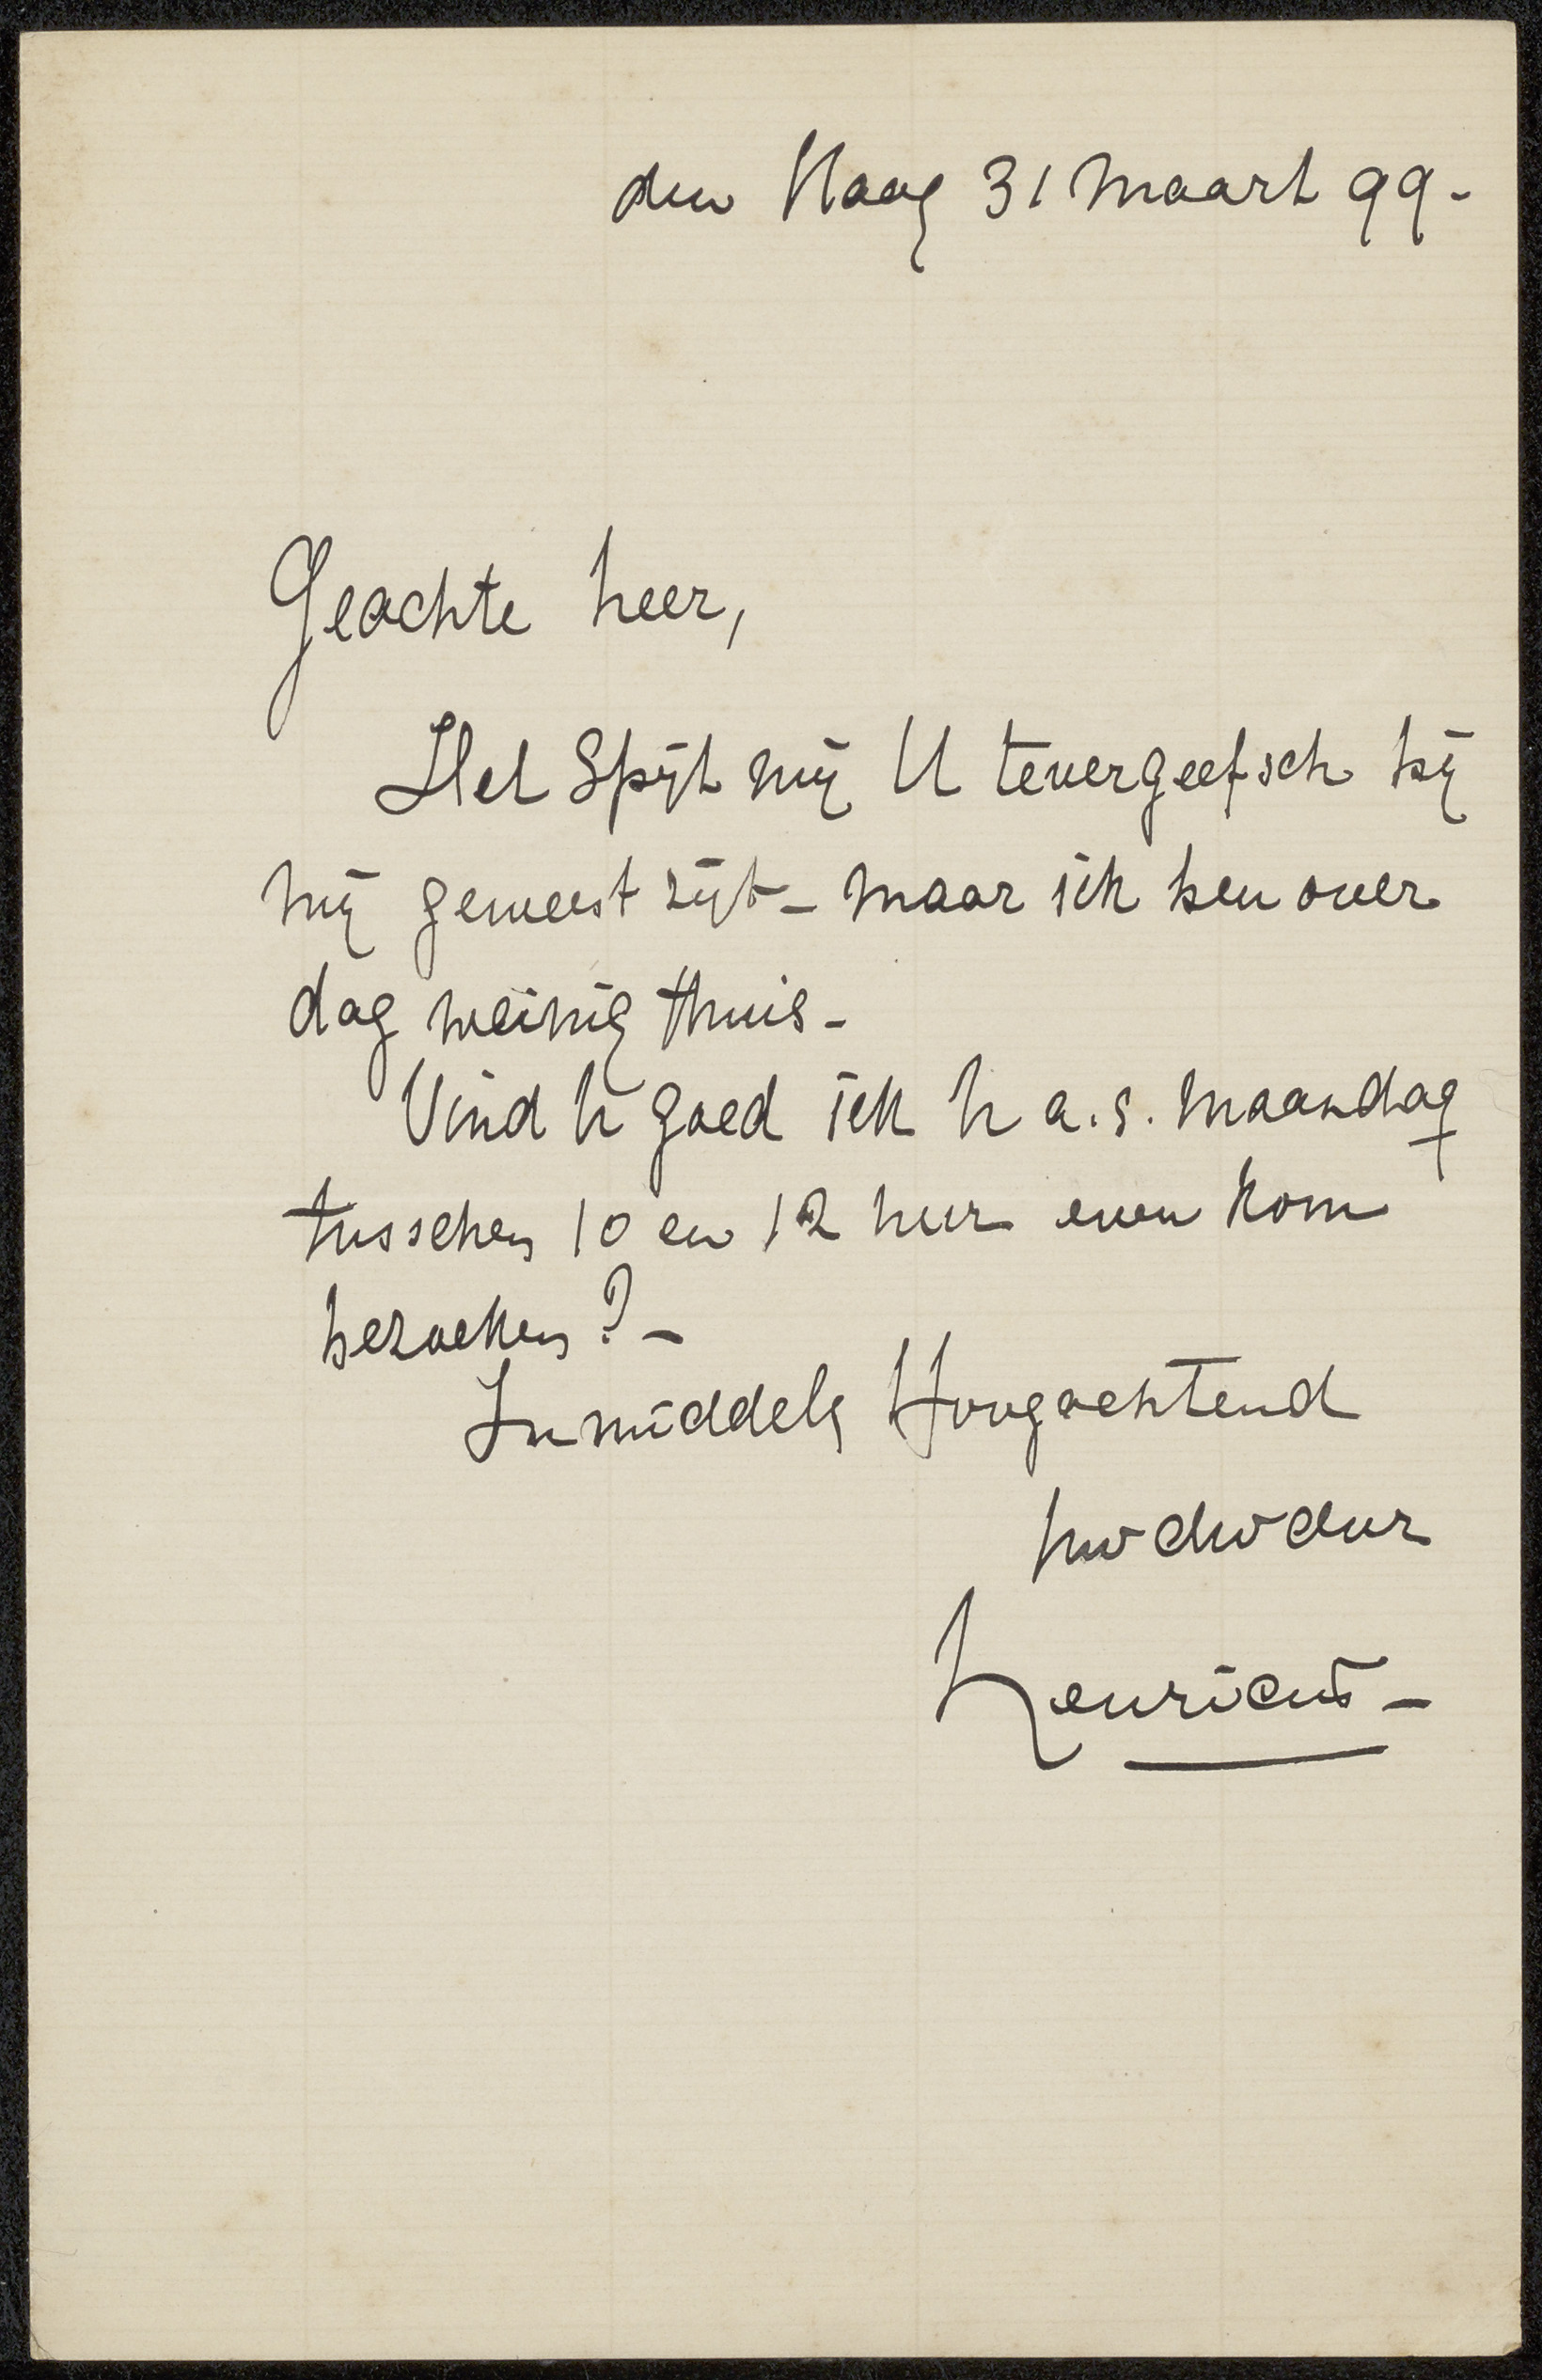 den Haag 31 Maart 99-
Geachte heer,
Het Spijt mij U tevergeefsch bij
mij geweest zijt - maar ik ben over
dag weinig thuis -
Vind U goed ik U a.s. Maandag
tusschen 10 en 12 uur even kom
bezoeken? -
Inmiddels Hoogachtend
uw dw dnr
Henricus -